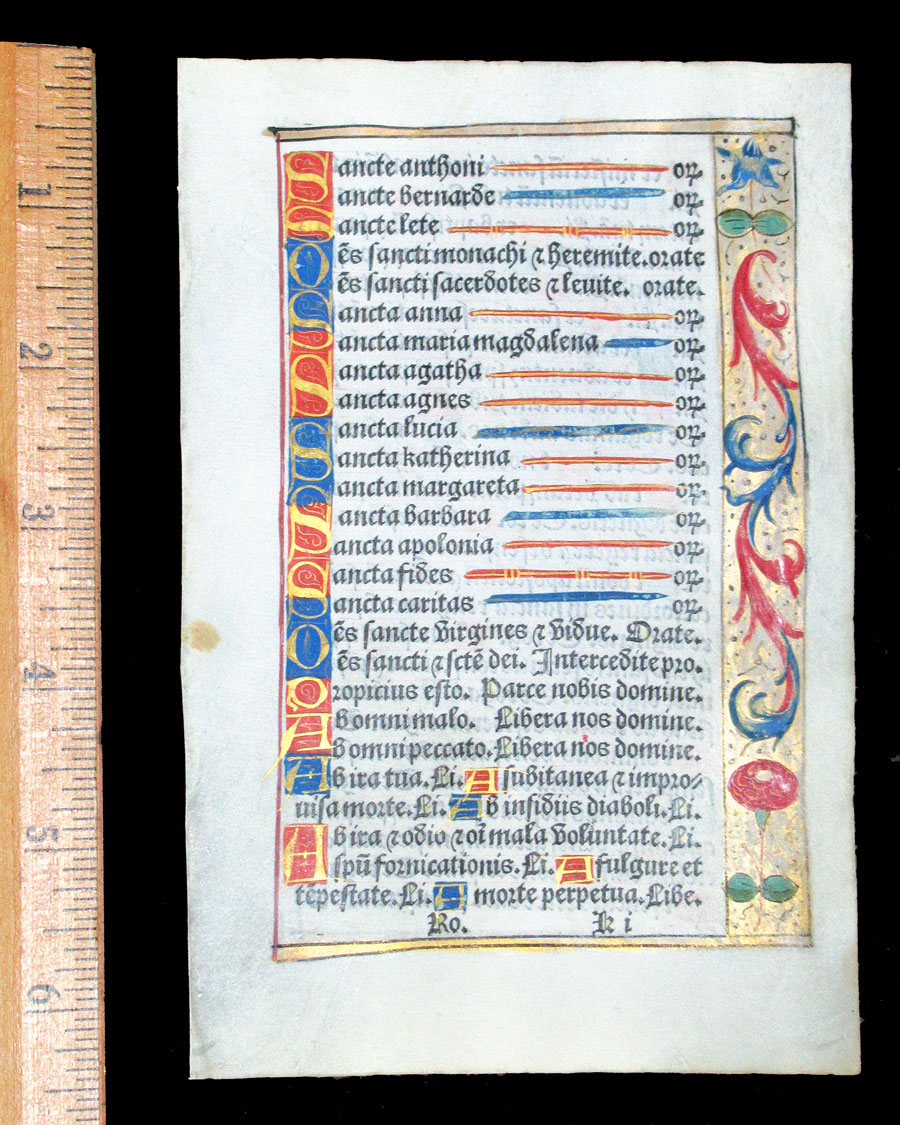 1
2
3
4
5
6
Sancte anthoni oꝝ.
Sancte bernarde oꝝ.
Sancte lete oꝝ.
Oēs sancti monachi ⁊ heremite. orate
Oēs sancti sacerdotes ⁊ leuite. orate.
Sancta anna oꝝ.
Sancta maria magdalena oꝝ.
Sancta agatha oꝝ.
Sancta agnes oꝝ.
Sancta lucia oꝝ.
Sancta katherina oꝝ.
Sancta margareta oꝝ.
Sancta barbara oꝝ.
Sancta apolonia oꝝ.
Sancta fides oꝝ.
Sancta caritas oꝝ.
Oēs sancte virgines ⁊ vidue. Orate.
Oēs sancti ⁊ sctē dei. Intercedite pro.
Propicius esto. Parce nobis domine.
Ab omni malo. Libera nos domine.
Ab omni peccato. Libera nos domine.
Ab ira tua. Li. A subitanea ⁊ impro-
uisa morte. Li. Ab insidiis diaboli. Li.
Ab ira ⁊ odio ⁊ oī mala voluntate. Li.
A spū fornicationis. Li. A fulgure et
tēpestate. Li. A morte perpetua. Libe.
Ro. k i